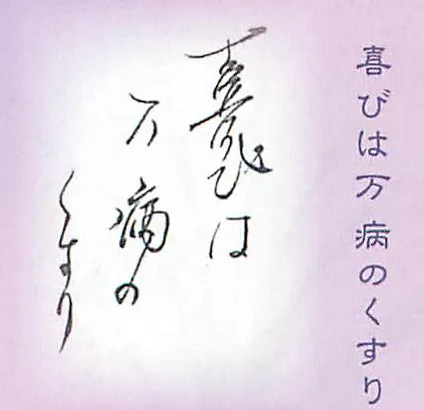 喜びは万病のくすり
喜びは
万病の
くすり